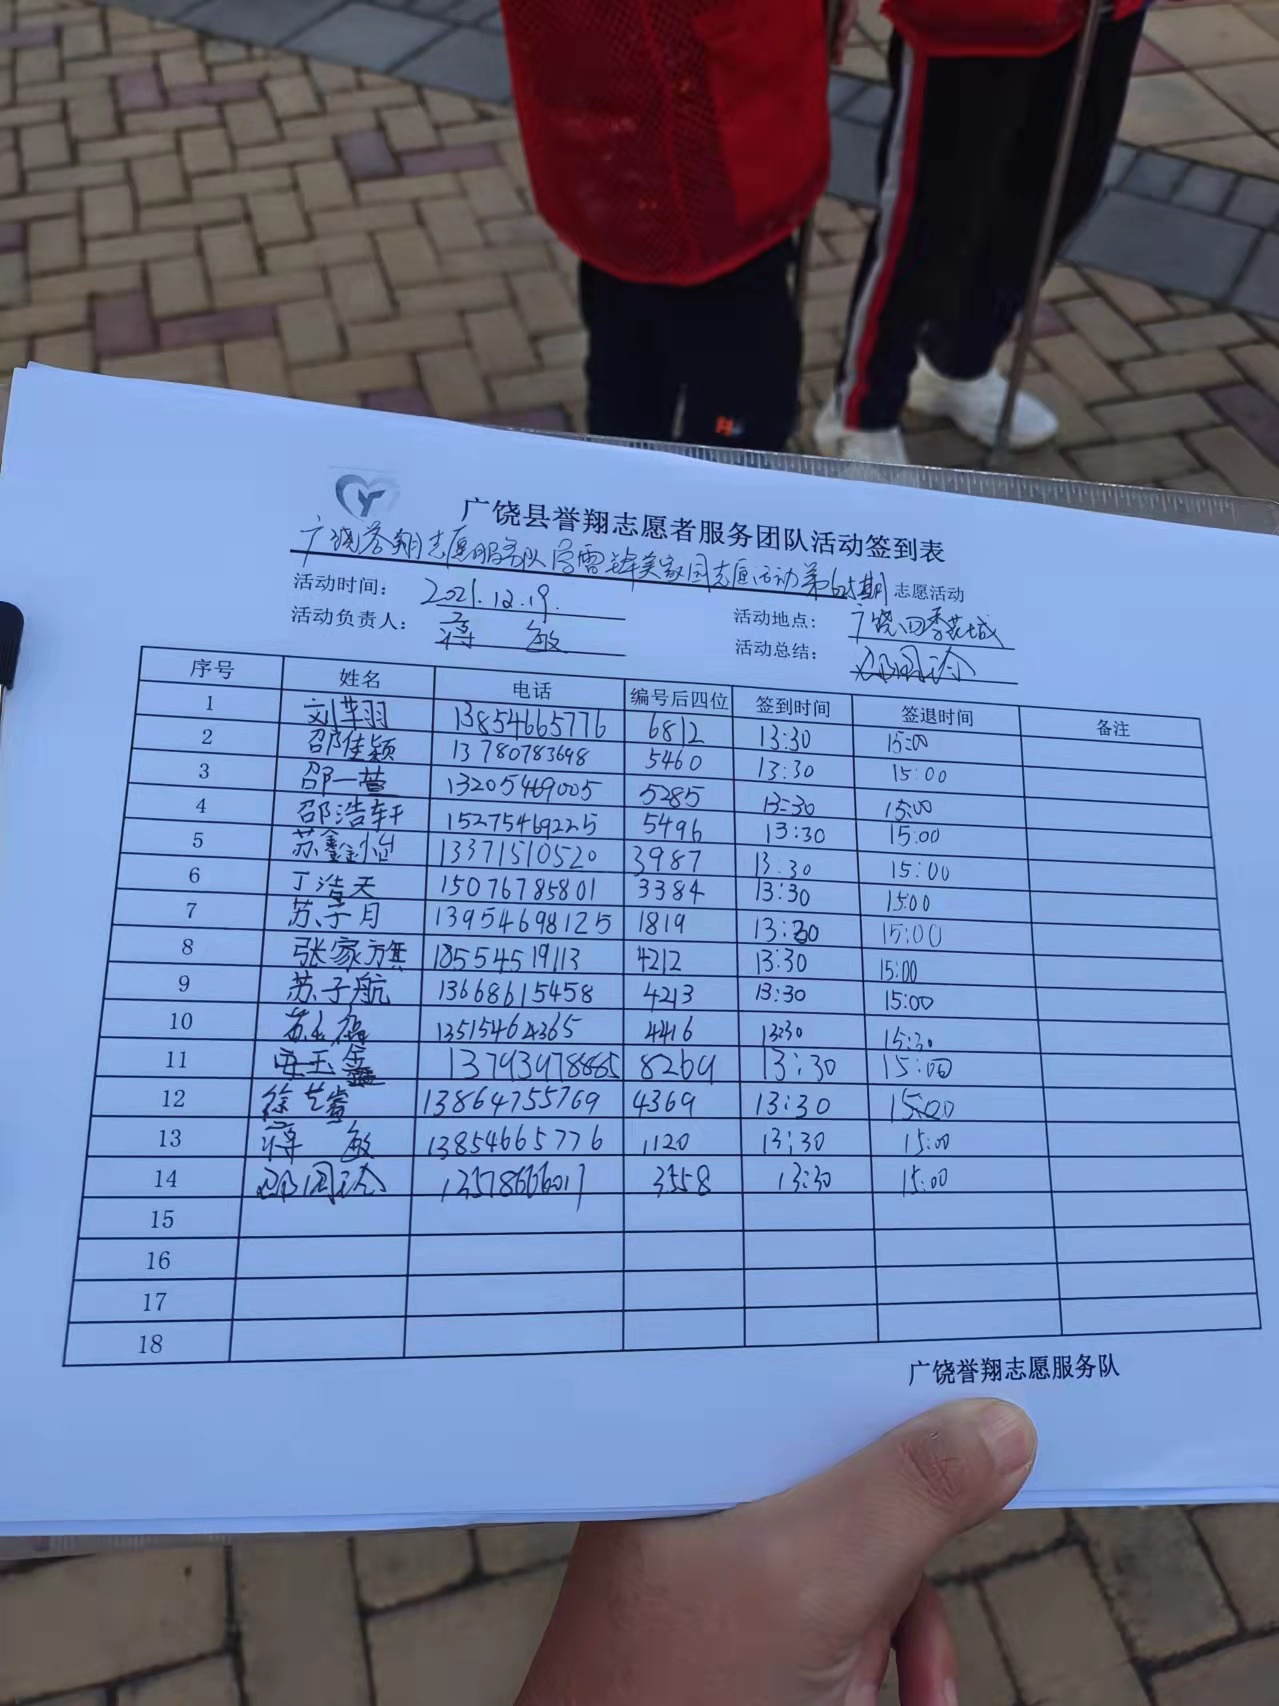 广饶县誉翔志愿者服务团队活动签到表
广饶誉翔志愿服务队学雷锋美家园志愿活动第625期 志愿活动
活动时间： 2021.12.19. 活动地点： 广饶四季花城
活动负责人： 蒋 敏 活动总结： 邵国玲
序号 姓名 电话 编号后四位 签到时间 签退时间 备注
1 刘芊羽 13854665776 6812 13:30 15:00
2 邵佳颖 13780783698 5460 13:30 15:00
3 邵一萱 13205469005 5285 13:30 15:00
4 邵浩轩 15275469225 5496 13:30 15:00
5 苏鑫怡 13371510520 3987 13:30 15:00
6 丁浩天 15076785801 3384 13:30 15:00
7 苏子月 13954698125 1819 13:30 15:00
8 张家旗 18554519113 4212 13:30 15:00
9 苏子航 13668615458 4213 13:30 15:00
10 苏 13515464365 4416 13:30 15:30
11 玉鑫 13793978885 8269 13:30 15:00
12 徐艺 13864755769 4369 13:30 15:00
13 蒋 敏 13854665776 1120 13:30 15:00
14 邵国玲 3558 13:30 15:00
15
16
17
18
广饶誉翔志愿服务队